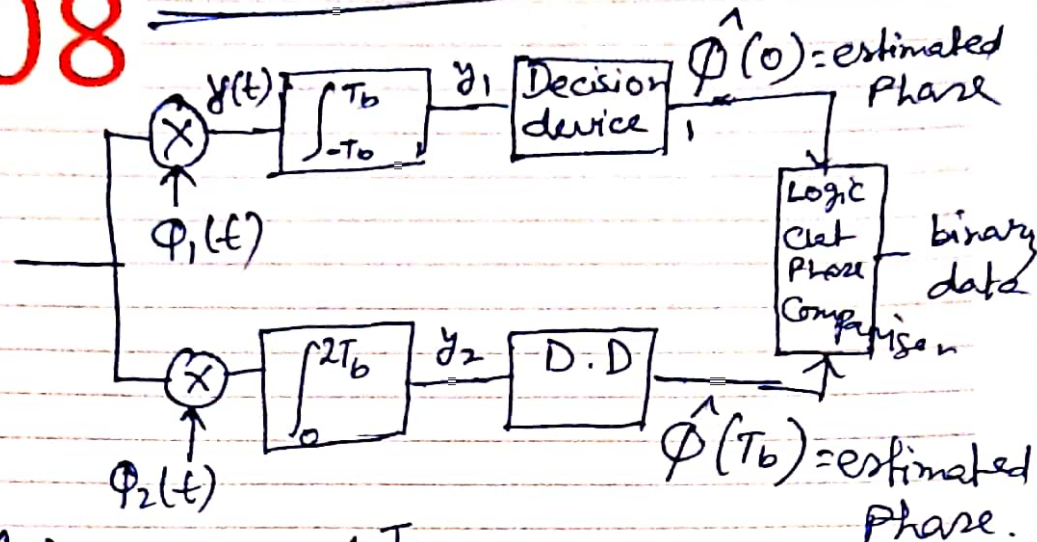 08
y(t)
∫ Tb -Tb
y1
Decision device
1
φ̂(0)=estimated
Phase
X
φ1(t)
Logic
Ckt
Phase
Comparison
binary
data
X
∫ 2Tb 0
y2
D.D
φ2(t)
φ̂(Tb)=estimated
Phase.